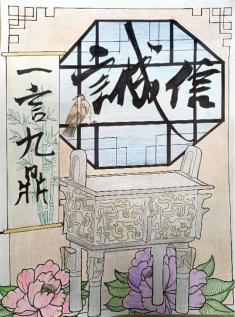 誠信
一言九鼎